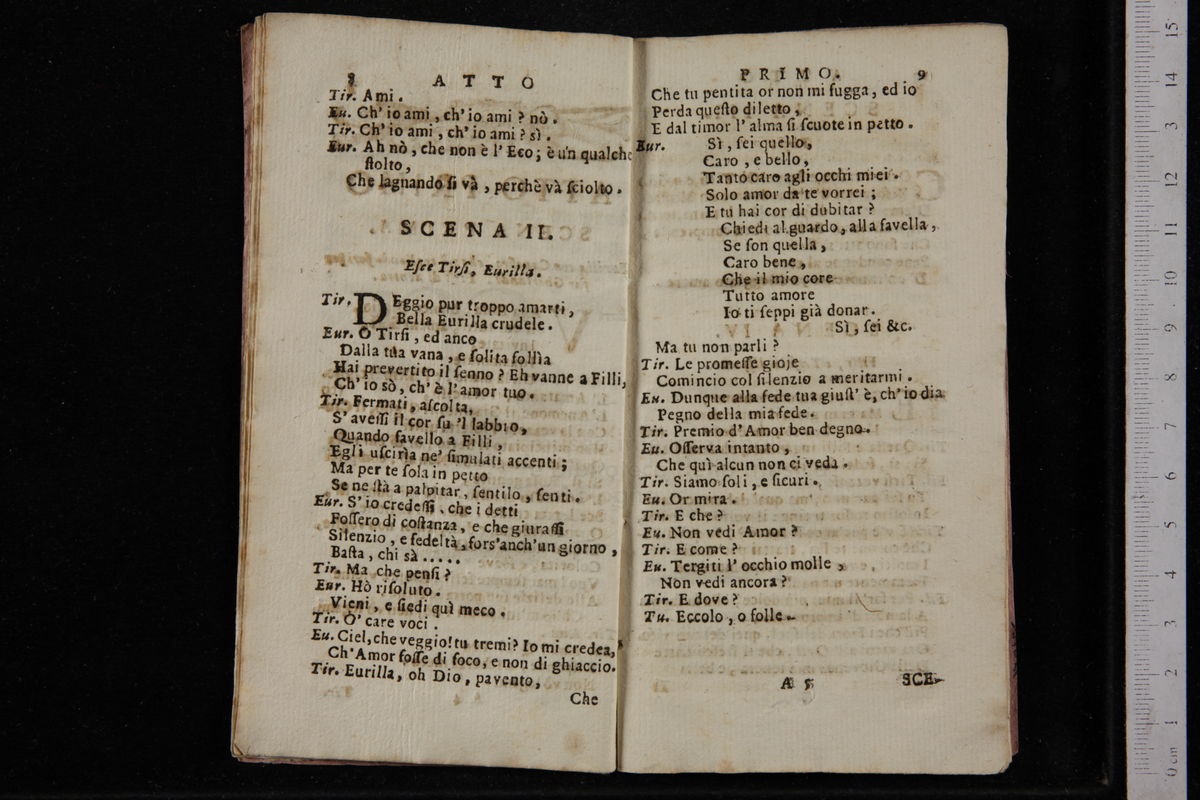 8 ATTO
Tir. Ami.
Eu. Ch' io ami, ch' io ami? nò.
Tir. Ch' io ami, ch' io ami? sì.
Eur. Ah nò, che non è l' Eco; è un qualche
ſtolto,
Che lagnando ſi và, perchè và ſciolto.
SCENA II.
Eſce Tirſi, Eurilla.
Tir. DEggio pur troppo amarti,
Bella Eurilla crudele.
Eur. O Tirſi, ed anco
Dalla tua vana, e ſolita follìa
Hai prevertito il ſenno? Eh vanne a Filli,
Ch' io sò, ch' è l' amor tuo.
Tir. Fermati, aſcolta,
S' aveſſi il cor ſu 'l labbio,
Quando favello a Filli,
Egli uſciria ne' ſimulati accenti;
Ma per te ſola in petto
Se ne ſtà a palpitar, ſentilo, ſenti.
Eur. S' io credeſſi, che i detti
Foſſero di coſtanza, e che giuraſſi
Silenzio, e fedeltà, fors' anch' un giorno,
Baſta, chi sà .....
Tir. Ma che penſi?
Eur. Hò riſoluto.
Vieni, e ſiedi quì meco.
Tir. O' care voci.
Eu. Ciel, che veggio! tu tremi? Io mi credea,
Ch' Amor foſſe di foco, e non di ghiaccio.
Tir. Eurilla, oh Dio, pavento,
Che
PRIMO. 9
Che tu pentita or non mi fugga, ed io
Perda queſto diletto,
E dal timor l' alma ſi ſcuote in petto.
Eur. Sì, ſei quello,
Caro, e bello,
Tanto caro agli occhi miei.
Solo amor da te vorrei;
E tu hai cor di dubitar?
Chiedi al guardo, alla favella,
Se ſon quella,
Caro bene,
Che il mio core
Tutto amore
Io ti ſeppi già donar.
Sì, ſei &c.
Ma tu non parli?
Tir. Le promeſſe gioje
Comincio col ſilenzio a meritarmi.
Eu. Dunque alla fede tua giuſt' è, ch' io dia
Pegno della mia fede.
Tir. Premio d' Amor ben degno.
Eu. Oſſerva intanto,
Che quì alcun non ci veda.
Tir. Siamo ſoli, e ſicuri.
Eu. Or mira.
Tir. E che?
Eu. Non vedi Amor?
Tir. E come?
Eu. Tergiti l' occhio molle,
Non vedi ancora?
Tir. E dove?
Tu. Eccolo, o folle.
A 5 SCE-